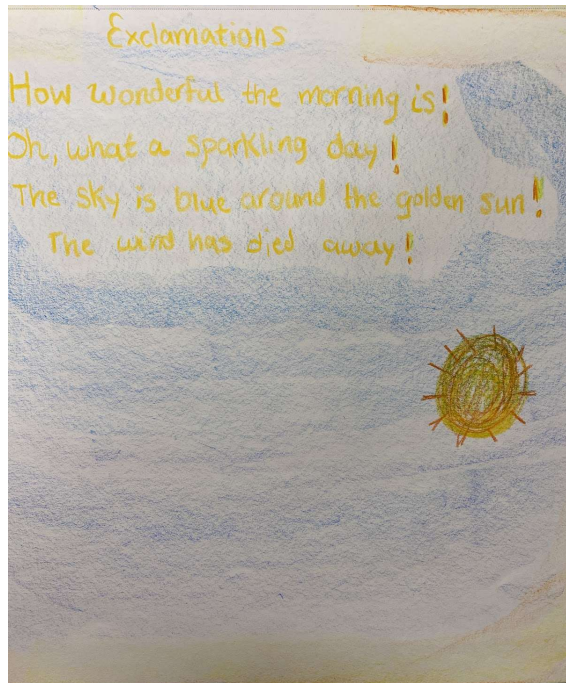 Exclamations
How wonderful the morning is!
Oh, what a sparkling day!
The sky is blue around the golden sun!
The wind has died away!